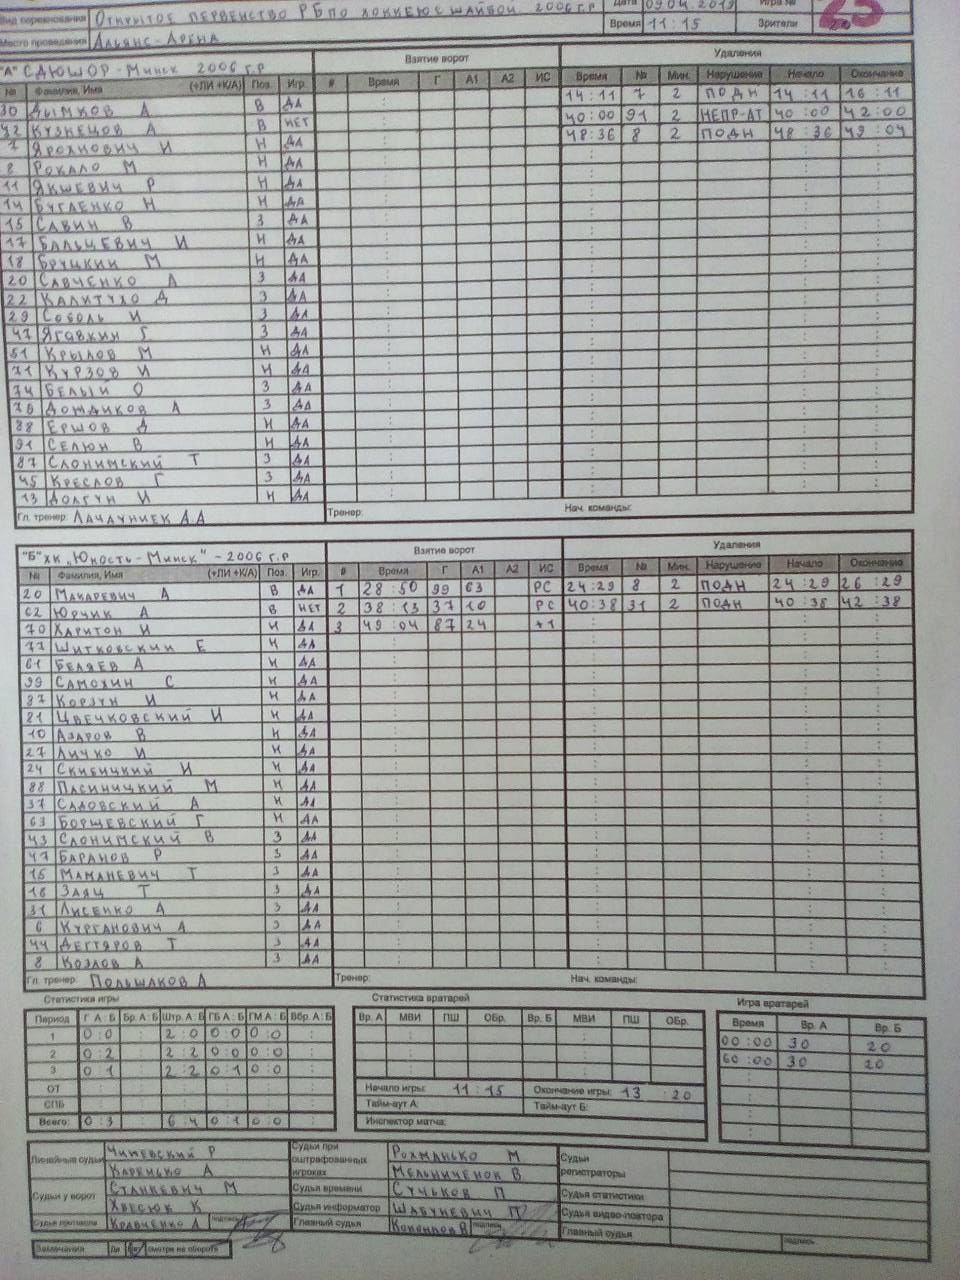 Вид соревнования ОТКРЫТОЕ ПЕРВЕНСТВО РБ ПО ХОККЕЮ С ШАЙБОЙ 2006 Г.Р Дата 09 04 2019 Игра №
Место проведения АЛЬЯНС-АРЕНА Время 11:15 Зрители 20
"А" СДЮШОР - МИНСК 2006 Г.Р Взятие ворот Удаления
№ Фамилия, Имя (+ЛИ +К/А) Поз. Игр. # Время Г А1 А2 ИС Время № Мин. Нарушение Начало Окончание
30 ДЫМКОВ А В ДА 14:11 7 2 ПОДН 14:11 16:11
КУЗНЕЦОВ А В НЕТ 40:00 91 2 НЕПР-АТ 40:00 42:00
7 ЯРОХНОВИЧ И Н ДА 48:36 8 2 ПОДН 48:36 49:04
8 РОКАЛО М Н ДА
11 ЯКШЕВИЧ Р Н ДА
14 БУГЛЕНКО Н Н ДА
15 САВИН В З ДА
17 БАЛЬЦЕВИЧ И Н ДА
18 БРУЦКИЙ М Н ДА
20 САВЧЕНКО А З ДА
22 КАЛИТУХО Д З ДА
29 СОБОЛЬ И З ДА
47 ЯГАВКИН Г З ДА
51 КРЫЛОВ М Н ДА
71 КУРЗОВ И Н ДА
74 БЕЛЫЙ О З ДА
76 ДОЖДИКОВ А З ДА
88 ЕРШОВ Д Н ДА
91 СЕЛЮН В Н ДА
87 СЛОНИМСКИЙ Т З ДА
45 КРЕСЛОВ Г З ДА
13 ДОЛГУН И Н ДА
Гл. тренер: Тренер: Нач. команды:
"Б" ХК „ЮНОСТЬ-МИНСК" - 2006 Г.Р Взятие ворот Удаления
№ Фамилия, Имя (+ЛИ +К/А) Поз. Игр. # Время Г А1 А2 ИС Время № Мин. Нарушение Начало Окончание
20 МАКАРЕВИЧ А В ДА 1 28:50 99 63 РС 24:29 8 2 ПОДН 24:29 26:29
62 ЮРЧИК А В НЕТ 2 38:13 37 10 РС 40:38 31 2 ПОДН 40:38 42:38
70 ХАРИТОН И Н ДА 3 49:04 87 24 +1
77 ШИТКОВСКИЙ Е Н ДА
61 БЕЛЯЕВ А Н ДА
99 САМОХИН С Н ДА
87 КОРЗУН И Н ДА
81 ЦВЕЧКОВСКИЙ И Н ДА
10 АЗАРОВ В Н ДА
27 ЛИЧКО И Н ДА
24 СКИБИЦКИЙ И Н ДА
88 ПАСИНИЦКИЙ М Н ДА
37 САДОВСКИЙ А Н ДА
63 БОРЩЕВСКИЙ Г Н ДА
43 СЛОНИМСКИЙ В З ДА
47 БАРАНОВ Р З ДА
МАМАНЕВИЧ Т З ДА
ЗАЯЦ Т З ДА
31 ЛИСЕНКО А З ДА
6 КУРГАНОВИЧ А З ДА
44 ДЕГТЯРОВ Т З ДА
8 КОЗЛОВ А З ДА
Гл. тренер: ПОЛЬШАКОВ А Тренер: Нач. команды:
Статистика игры Статистика вратарей Игра вратарей
Период Г А:Б Бр. А:Б Штр. А:Б ГБ А:Б ГМ А:Б Вбр. А:Б Вр. А МВИ ПШ ОБр. Вр. Б МВИ ПШ ОБр. Время Вр. А Вр. Б
1 0:0 2:0 0:0 0:0 00:00 30 20
2 0:2 2:2 0:0 0:0 60:00 30 20
3 0:1 2:2 0:1 0:0
ОТ
СПБ Начало игры: 11:15 Окончание игры: 13:20
Тайм-аут А: Тайм-аут Б:
Всего: 0:3 6:4 0:1 0:0 Инспектор матча:
Линейные судьи ЧИЖЕВСКИЙ Р Судьи при оштрафованных игроках РОХМАНЬКО М Судьи регистраторы
КАРЕНЬКО А МЕЛЬНИЧЕНОК В
Судьи у ворот СТАНКЕВИЧ М Судья времени СУЧЬКОВ П Судья статистики
ХВЕСЮК К Судья информатор ШАБУНЕВИЧ П Судья видео-повтора
Судья протокола КРАВЧЕНКО А подпись Главный судья подпись Главный судья
подпись
Замечания Да Нет смотри на обороте